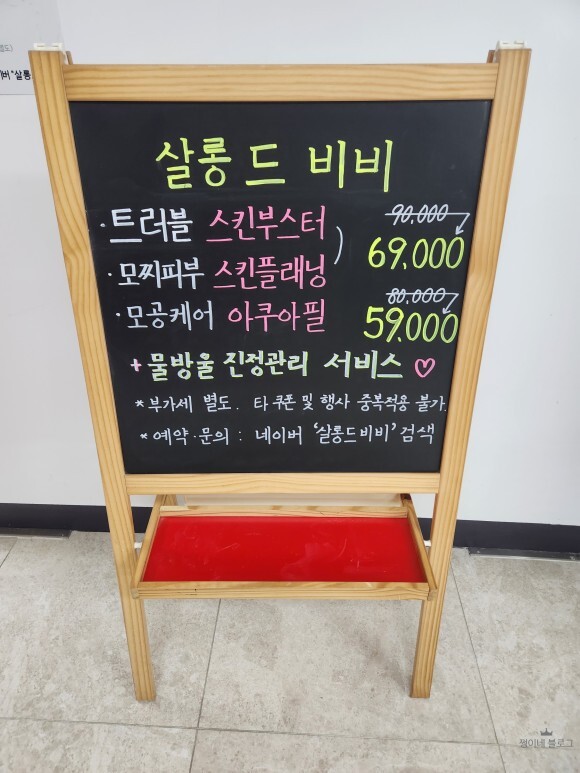 버 "살롱
살롱 드 비비
· 트러블 스킨부스터
90,000
69,000
· 모찌피부 스킨플래닝
80,000
· 모공케어 아쿠아필
59,000
+ 물방울 진정관리 서비스 ♡
* 부가세 별도. 타 쿠폰 및 행사 중복적용 불가.
* 예약·문의 : 네이버 '살롱드비비' 검색
쩡이네 블로그